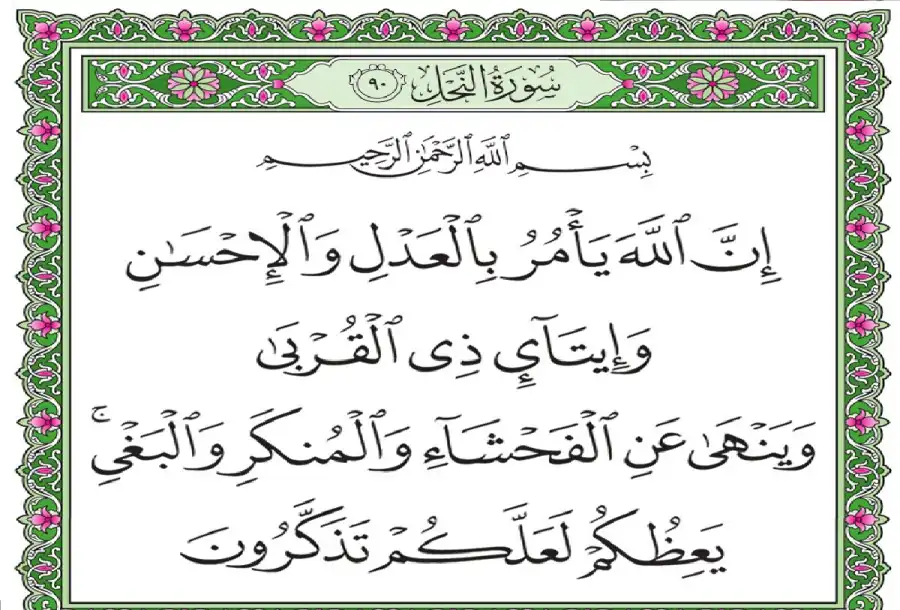 سُورَةُ النَّحْلِ ٩٠
بِسْمِ ٱللَّهِ ٱلرَّحْمَٰنِ ٱلرَّحِيمِ
إِنَّ ٱللَّهَ يَأْمُرُ بِٱلْعَدْلِ وَٱلْإِحْسَٰنِ
وَإِيتَآيِٕ ذِى ٱلْقُرْبَىٰ
وَيَنْهَىٰ عَنِ ٱلْفَحْشَآءِ وَٱلْمُنكَرِ وَٱلْبَغْىِ ۚ
يَعِظُكُمْ لَعَلَّكُمْ تَذَكَّرُونَ